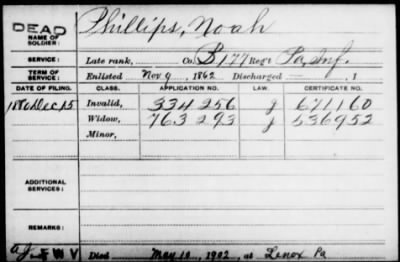 DEAD Phillips, Noah
NAME OF SOLDIER:
SERVICE: Late rank, Co. B 177 Reg't Pa Inf.
TERM OF SERVICE: Enlisted Nov 9, 1862 Discharged , 1
DATE OF FILING. CLASS. APPLICATION NO. LAW. CERTIFICATE NO.
1880 Dec 15 Invalid, 334 256 J 671160
Widow, 763 293 J 536952
Minor,
ADDITIONAL SERVICES:
REMARKS:
F W V Died May 10, 1902, at Lenox Pa